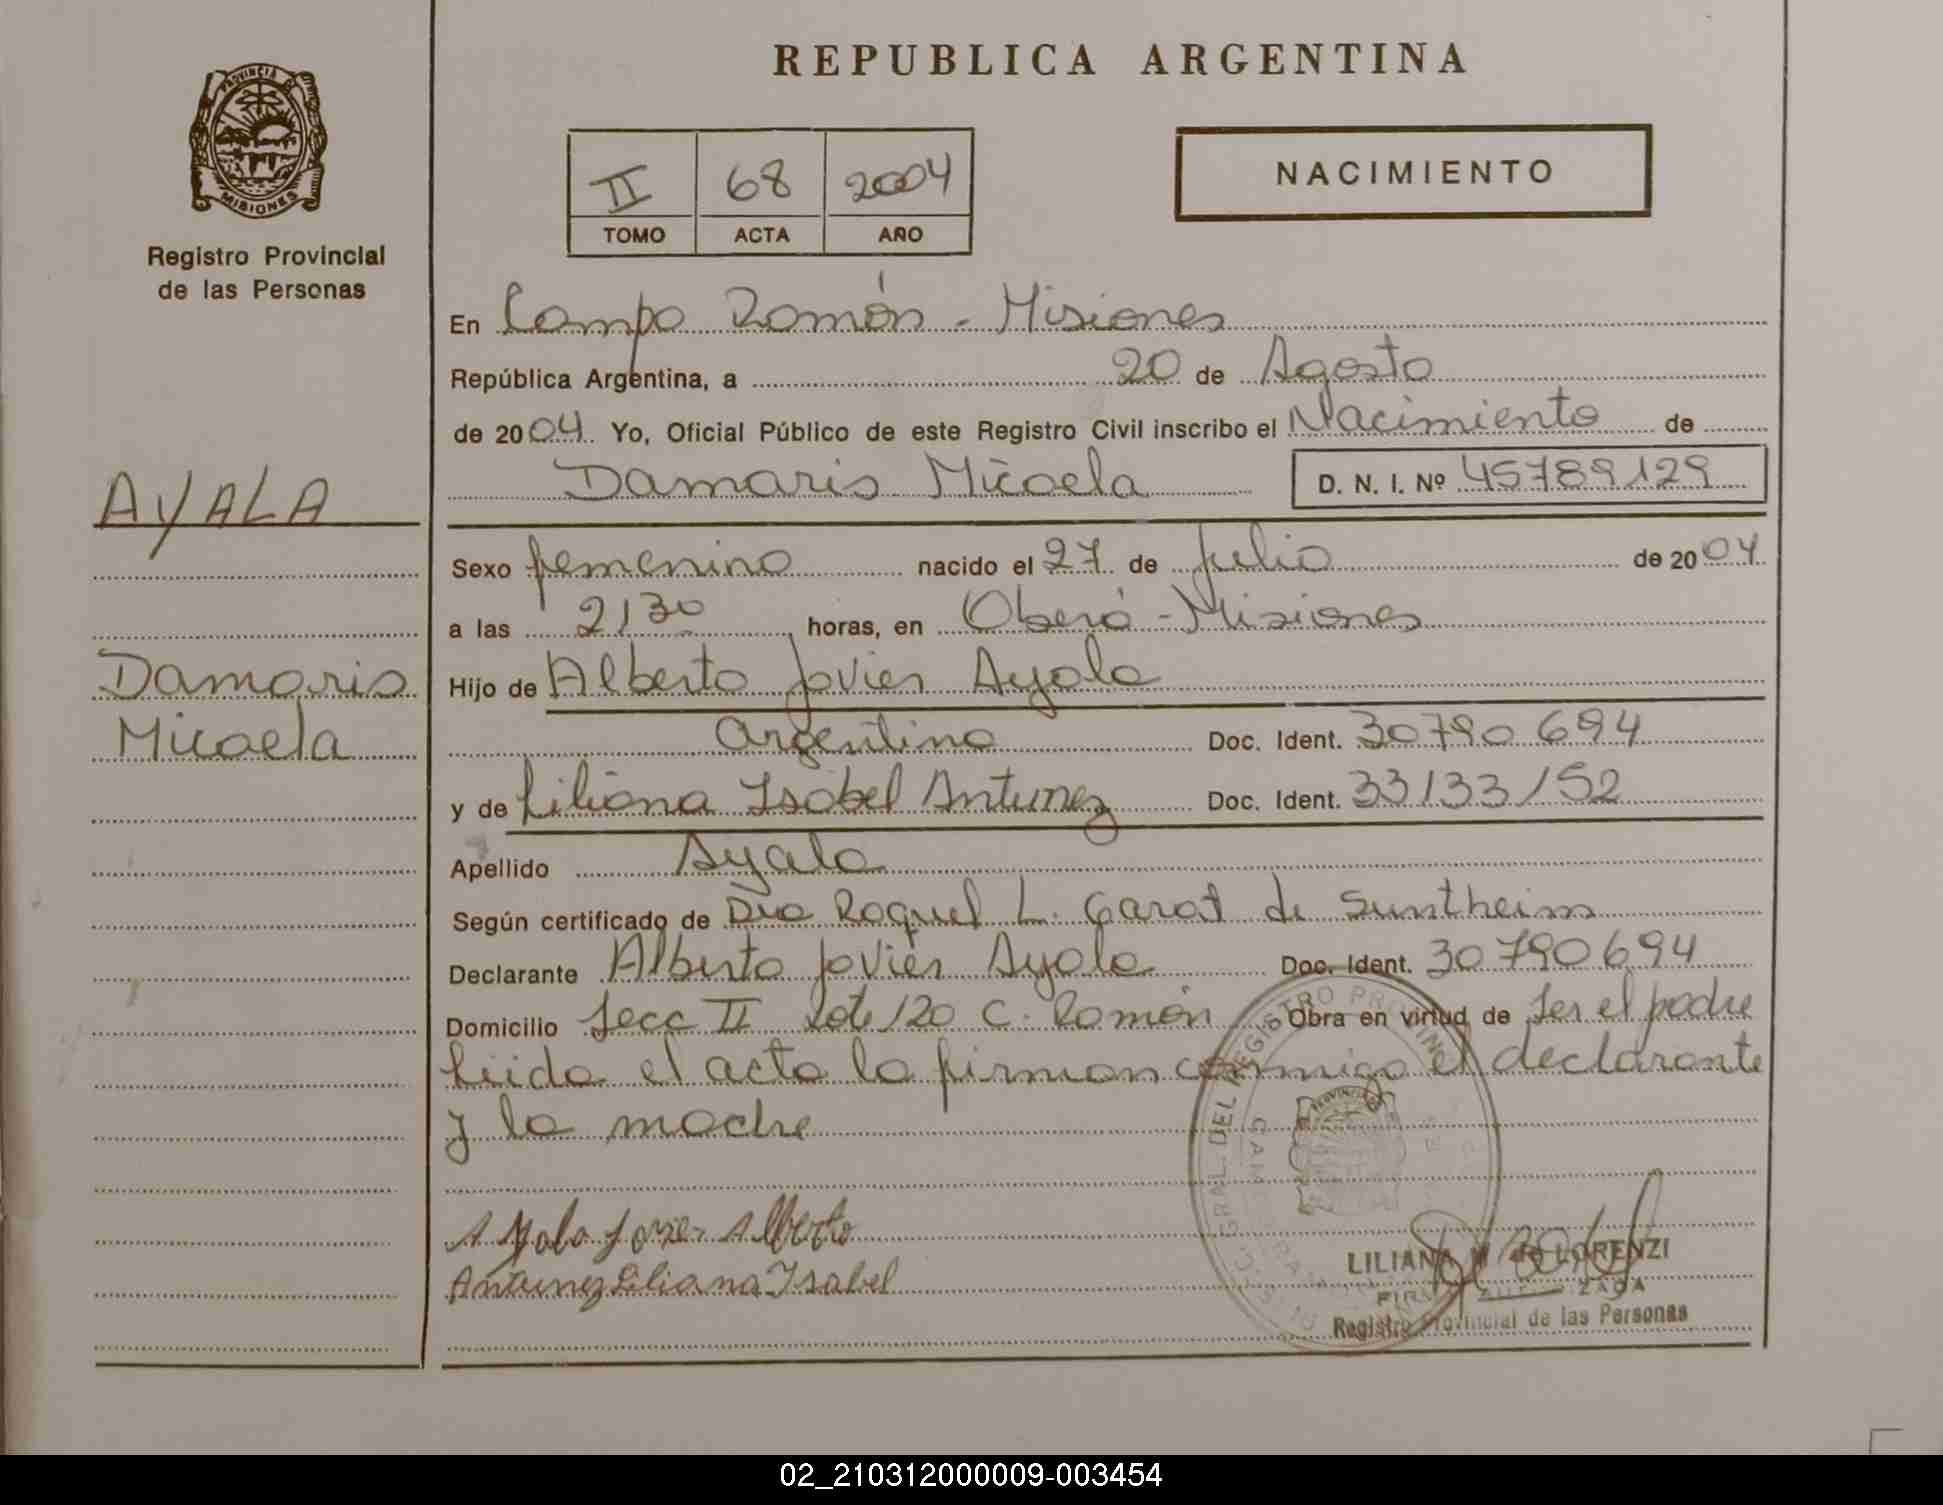 REPUBLICA ARGENTINA
PROVINCIA DE
MISIONES
Registro Provincial
de las Personas
II 68 2004
TOMO ACTA AÑO
NACIMIENTO
En Campo Ramón - Misiones
República Argentina, a 20 de Agosto
de 2004 Yo, Oficial Público de este Registro Civil inscribo el Nacimiento de
Damaris Micaela D. N. I. Nº 45789129
AYALA
Damaris
Micaela
Sexo femenino nacido el 27 de Julio de 2004
a las 2130 horas, en Oberá - Misiones
Hijo de Alberto Javier Ayala
Argentino Doc. Ident. 30790694
y de Liliana Isabel Antunez Doc. Ident. 33133152
Apellido Ayala
Según certificado de Dra Raquel L. Garat de Suntheim
Declarante Alberto Javier Ayala Doc. Ident. 30790694
Domicilio Secc II Lote 120 C. Ramón Obra en virtud de ser el padre
Leida el acta la firman conmigo el declarante
y la madre
Ayala Javier Alberto
Antunez Liliana Isabel
LILIANA LORENZI
Registro Provincial de las Personas
02_210312000009-003454